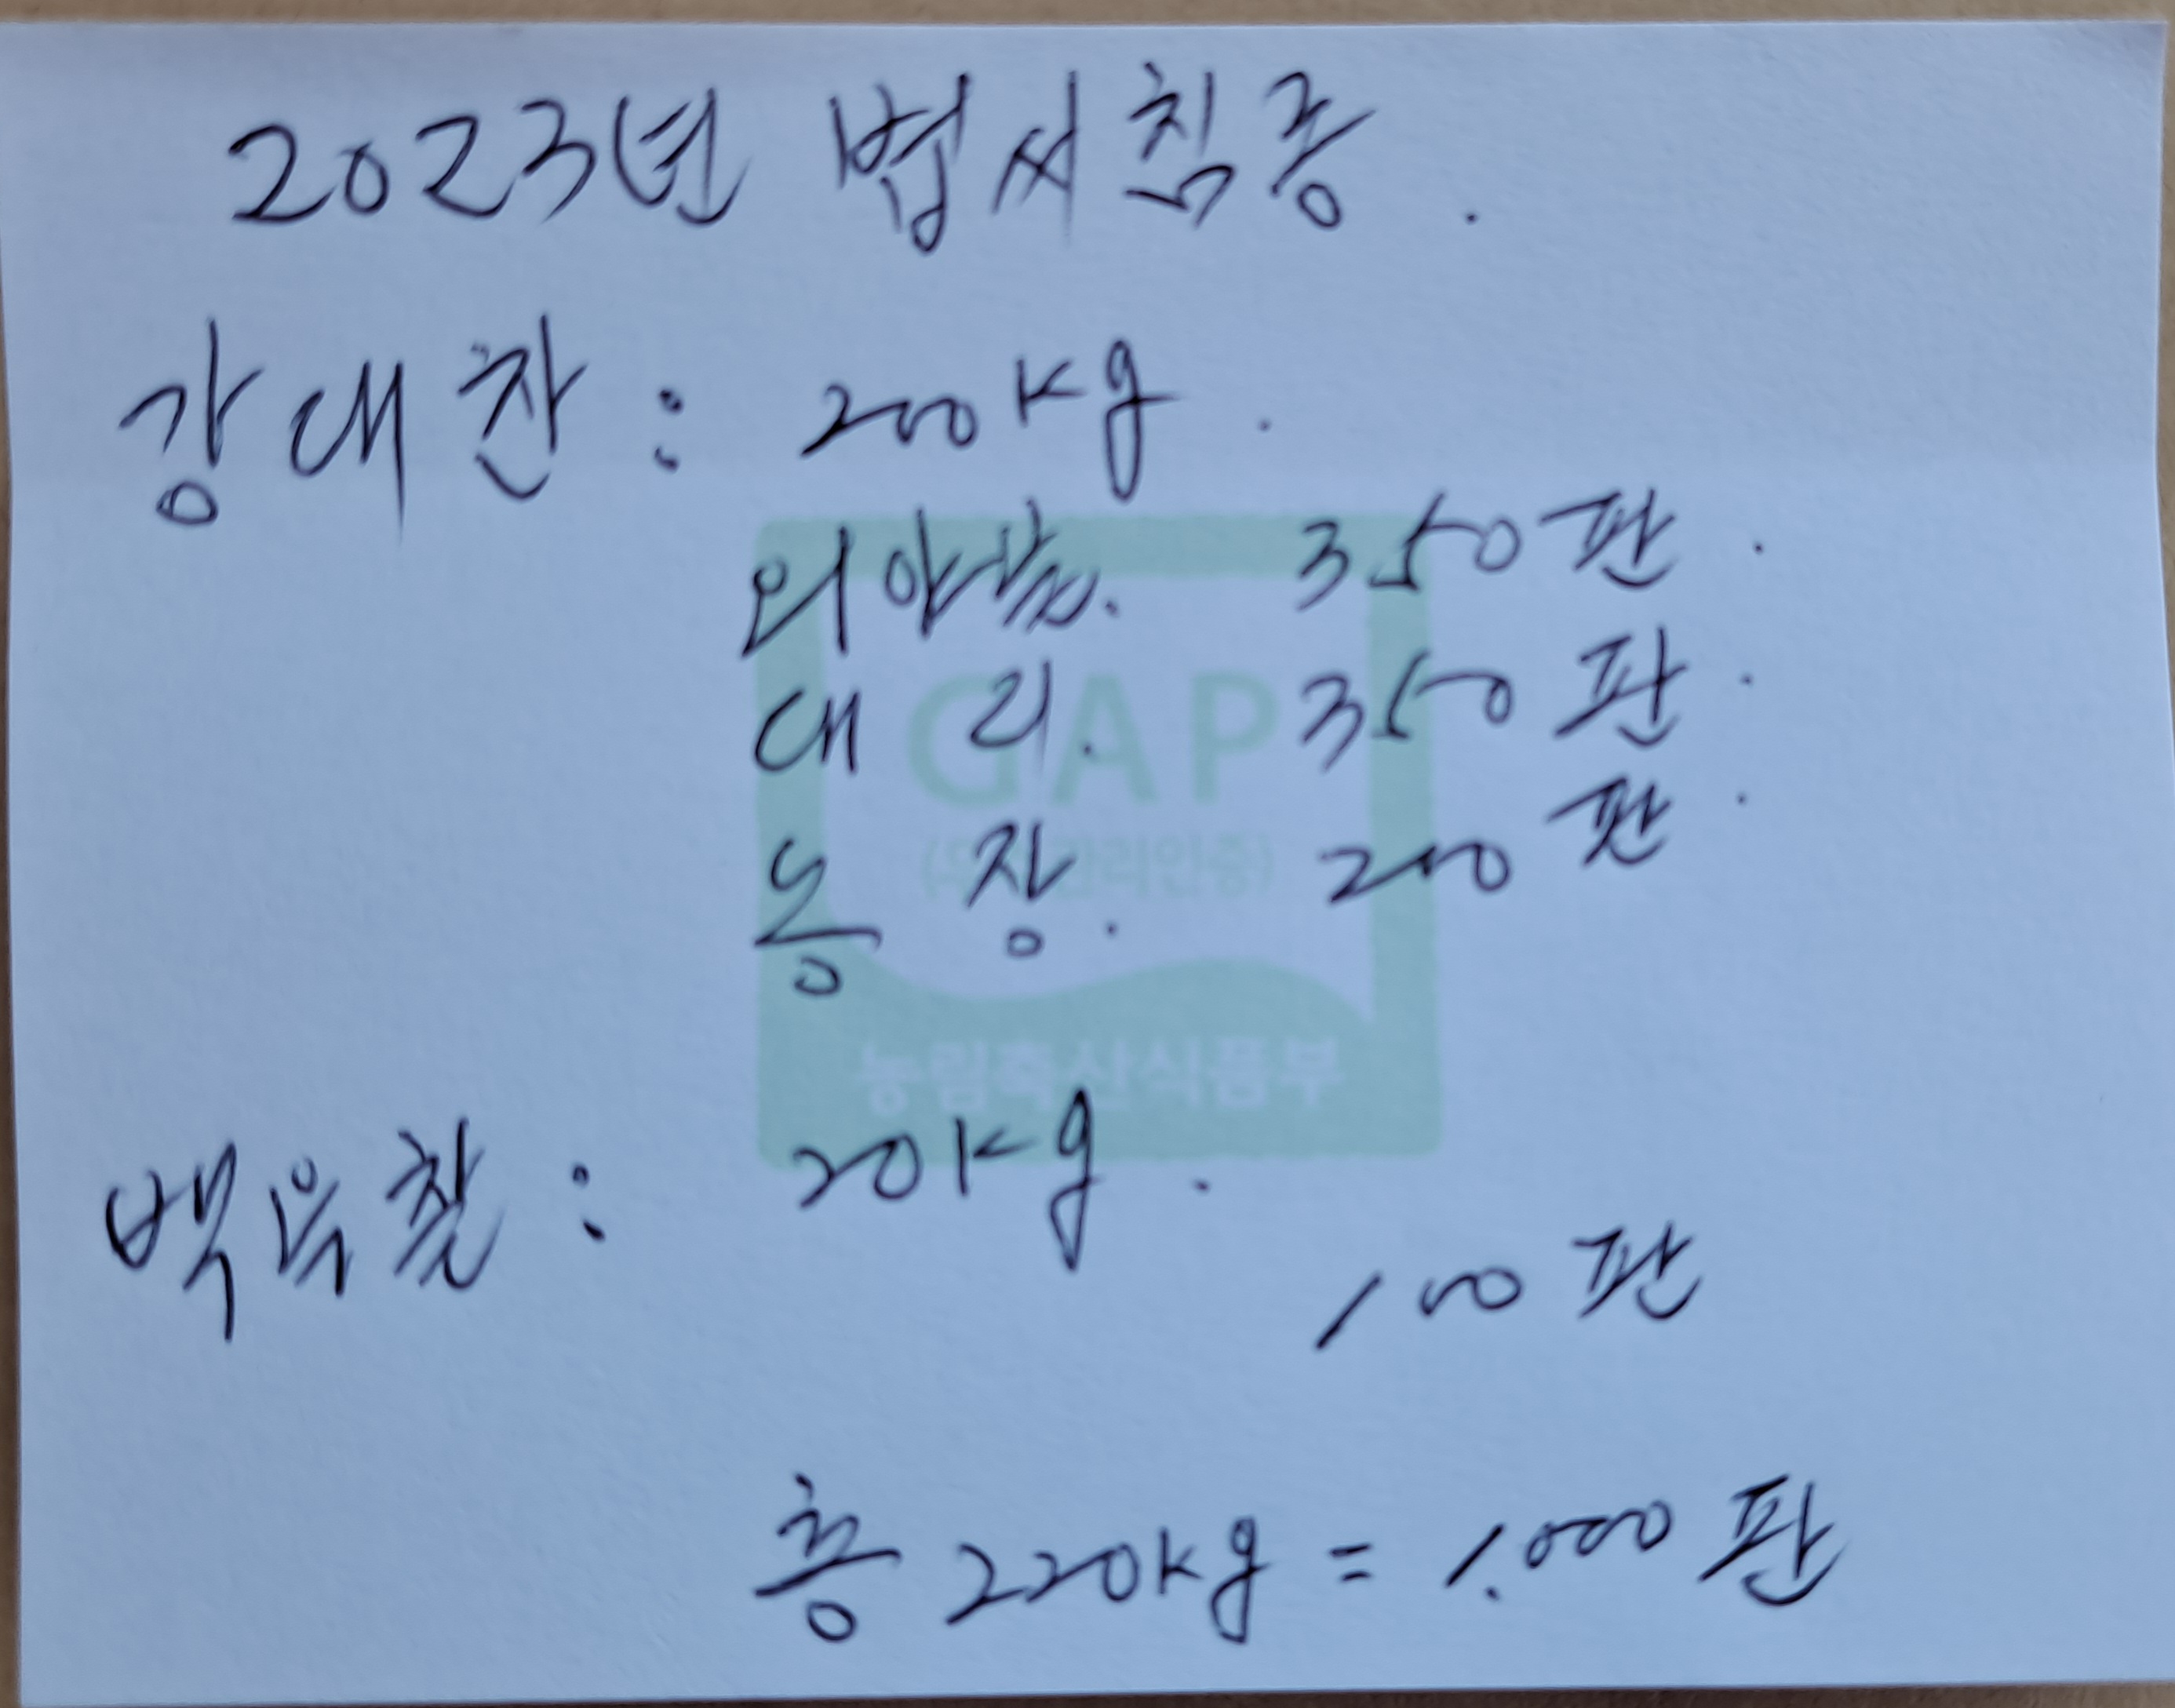 2023년 볍씨침종.
강대찬 : 200kg.
외안뜸. 350판.
대리. 350판.
농장. 200판.
GAP
(우 관리인증)
농림축산식품부
백옥찰 : 20kg.
100판
총 220kg = 1.000판